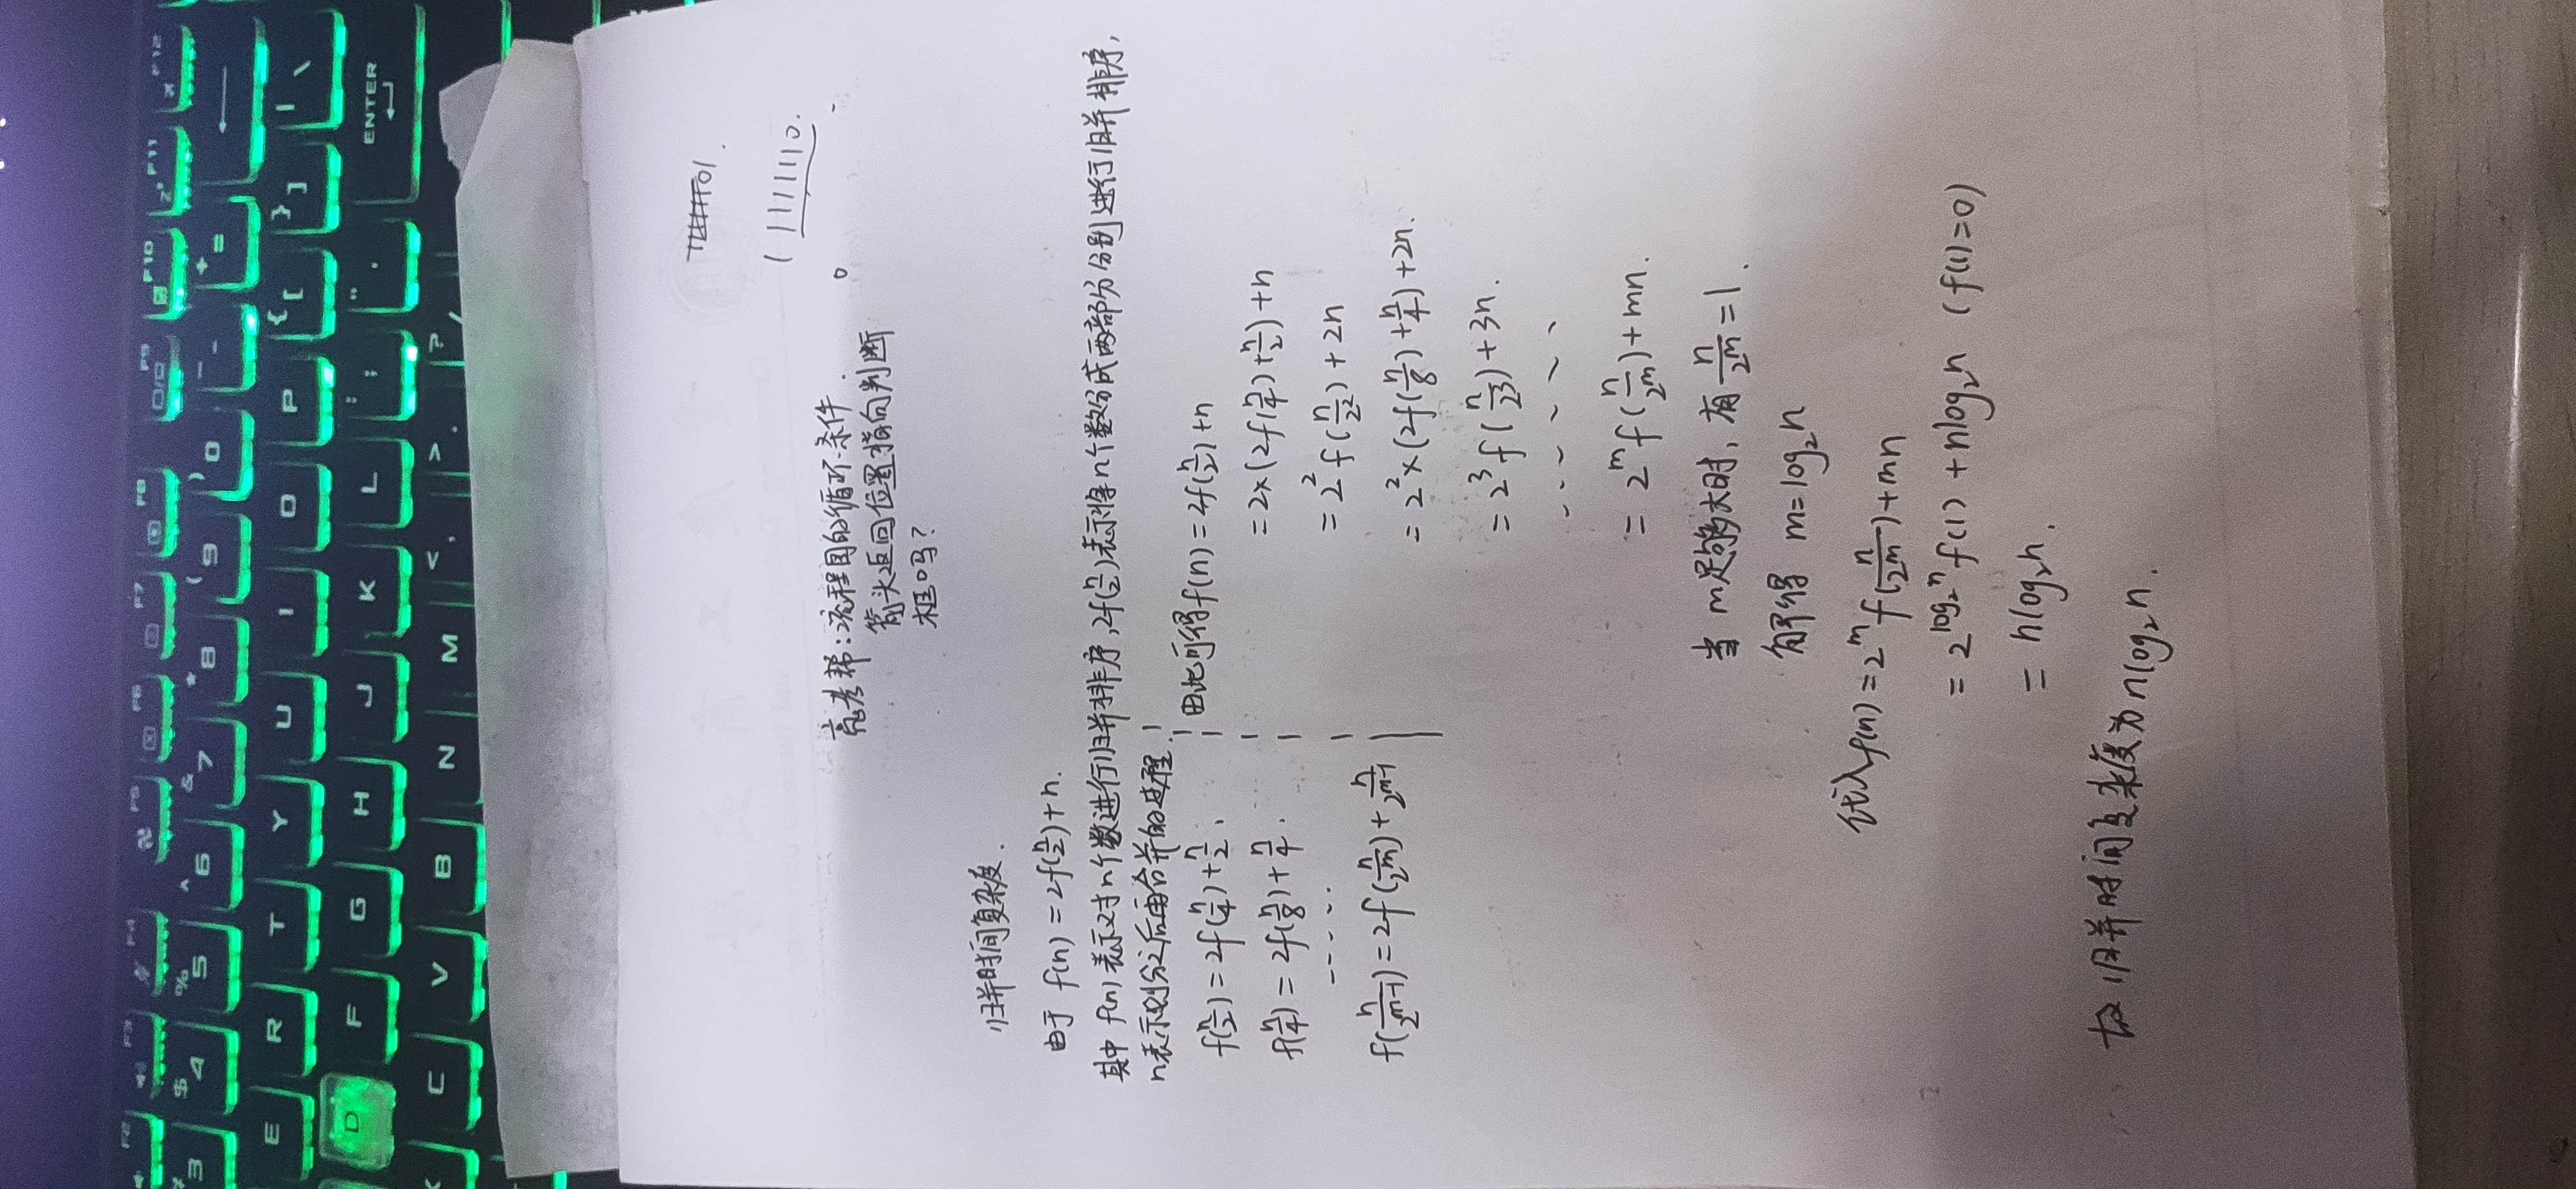 F2 F3 F4 F5 F6 F7 F8 F9 F10 F11 F12
# 3 $ 4 % 5 ^ 6 & 7 * 8 ( 9 ) 0 _ - + =
E R T Y U I O P { [ } ] | \
D F G H J K L : ; " ' ENTER
C V B N M < , > . ? /
重庆工商大学
Chongqing Technology and Business University
01.
1 11111110.
0
高考帮:流程图的循环条件.
箭头返回位置指向判断
框吗?
归并时间复杂度.
由于 f(n) = 2f(n/2)+n.
其中 f(n) 表示对n个数进行归并排序,2f(n/2)表示将n个数分成两部分分别进行归并排序,
n表示划分之后再合并的过程.
f(n/2) = 2f(n/4)+n/2.
f(n/4) = 2f(n/8)+n/4.
.....
f(n/2^(m-1)) = 2f(n/2^m)+n/2^(m-1)
由此可得f(n) = 2f(n/2)+n
= 2×(2f(n/4)+n/2)+n
= 2^2 f(n/2^2)+2n
= 2^2×(2f(n/8)+n/4)+2n.
= 2^3 f(n/2^3)+3n.
......
= 2^m f(n/2^m)+mn.
当 m足够大时,有 n/2^m=1.
解得 m=log₂n
代入f(n) = 2^m f(n/2^m)+mn
= 2^(log₂n) f(1) + nlog₂n (f(1)=0)
= nlog₂n.
故归并时间复杂度为nlog₂n.